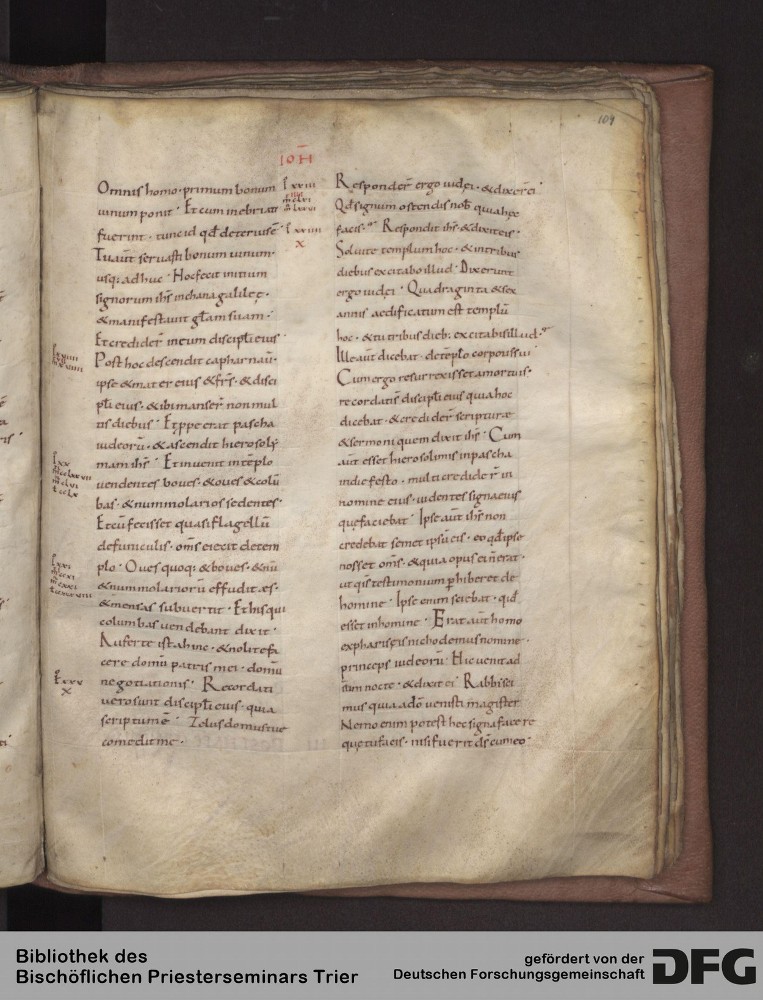 109
IOH
Omnis homo · primum bonum
uinum ponit · Et cum inebriati
fuerint · tunc id qđ deterius ē ·
Tu aut seruasti bonum uinum ·
usq; adhuc · Hoc fecit initium
signorum ihs in chana galileę ·
& manifestauit glam suam ·
Et credidert in eum discipli eius ·
Post hoc descendit capharnaū ·
ipse & mater eius & frs · & disci
pli eius · & ibi mansert non mul
tis diebus · Et ppe erat pascha
iudeorū · & ascendit hierosoly
mam ihs · Et inuenit in tēplo
uendentes boues · & oues & colū
bas · & nummolarios sedentes ·
Et cū fecisset quasi flagellū
de funiculis · oms eiecit de tem
plo · Oues quoq; & boues · & nū
& nummolariorū effudit ęs ·
& mensas subuertit · Et his qui
columbas uendebant dixit ·
Auferte ista hinc · & nolite fa
cere domū patris mei · domū
negotiationis · Recordati
uero sunt discipli eius · quia
scriptum ē · Zelus domus tuę
comedit me ·
Responderт ergo iudęi · & dixert ei ·
Qđ signum ostendis nob quia hęc
facis · Respondit ihs · & dixit eis ·
Soluite templum hoc · & in tribus
diebus excitabo illud · Dixerunt
ergo iudęi · Quadraginta & sex
annis aedificatum est templū
hoc · & tu tribus dieb; excitabis illud ·
Ille aut dicebat · de tēplo corporis sui
Cum ergo resurrexisset a mortuis ·
recordati s discipli eius quia hoc
dicebat · & crediderт scripturæ
& sermoni quem dixit ihs · Cum
aut esset hierosolimis in pascha
in die festo · multi crediderт in
nomine eius · uidentes signa eius
quę faciebat · Ipse aut ihs non
credebat semet ipsū eis · eo qđ ipse
nosset oms · & quia opus ei ñ erat ·
ut qis testimonium phiberet de
homine · Ipse enim sciebat · qid
esset in homine · Erat aut homo
ex phariseis nichodemus nomine ·
princeps iudeorū · Hic uenit ad
ihm nocte · & dixit ei · Rabbi sci
mus quia a dō uenisti magister
Nemo enim potest hec signa facere
quę tu facis · nisi fuerit ds cum eo ·
Bibliothek des
Bischöflichen Priesterseminars Trier
gefördert von der
Deutschen Forschungsgemeinschaft
DFG